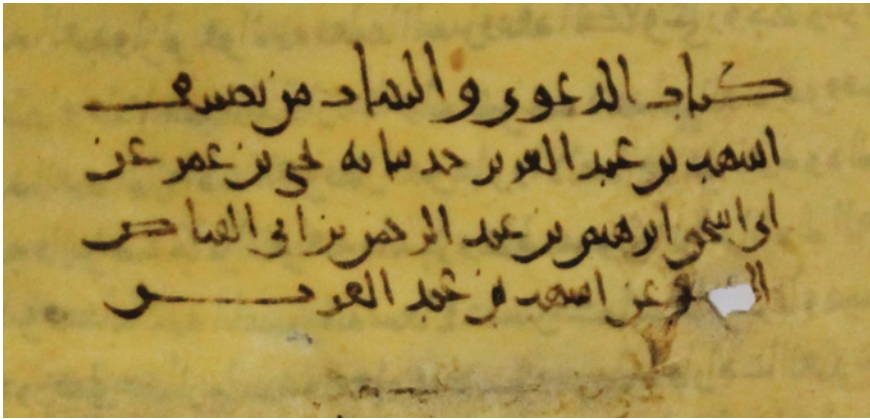 كتاب الدعوى والبينات من تصنيف
اشهب بن عبد العزيز حدثنا به يحيى بن عمر عن
ابي اسحق ابرهيم بن عبد الرحمن بن ابي الفياض
عن اشهب بن عبد العزيز